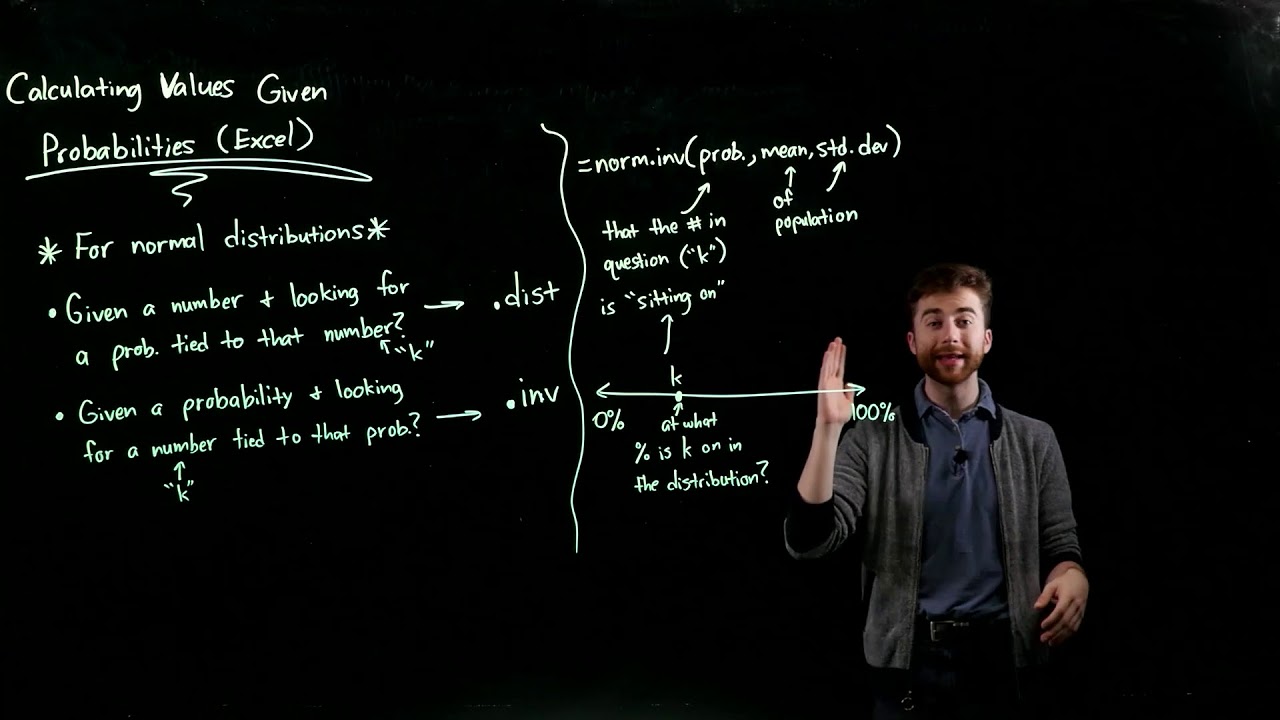 Calculating Values Given
Probabilities (Excel)
* For normal distributions *
• Given a number + looking for
a prob. tied to that number?
"k"
→ .dist
• Given a probability + looking
for a number tied to that prob.?
"k"
→ .inv
=norm.inv(prob., mean, std. dev)
that the # in
question ("k")
is "sitting on"
of
population
k
0%
100%
at what
% is k on in
the distribution?